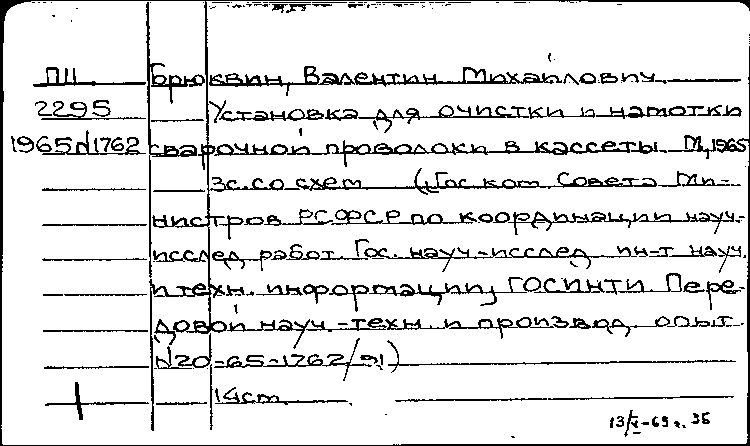 ПII Брюквин, Валентин Михайлович.
2295 Установка для очистки и намотки
1965 №1762 сварочной проволоки в кассеты. М, 1965
3с. со схем („Гос ком Совета Ми-
нистров РСФСР по координации науч.-
исслед. работ. Гос. науч.-исслед. ин-т науч.
и техн. информации, ГОСИНТИ. Пере-
довой науч.-техн. и производ. опыт.
№20-65-1762/91)
14 cm.
13/X-69 г. 35